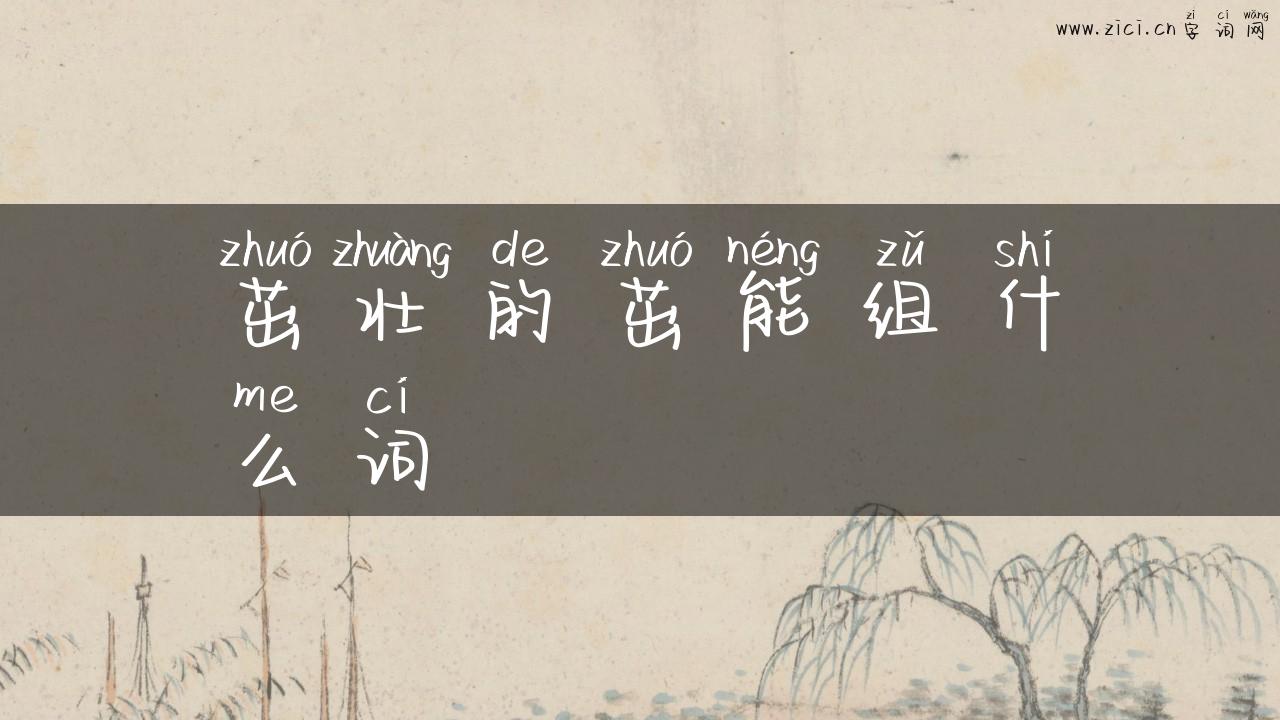 zì cí wǎng
www.zici.cn 字词网
zhuó zhuàng de zhuó néng zǔ shí
茁壮的茁能组什
me cí
么词